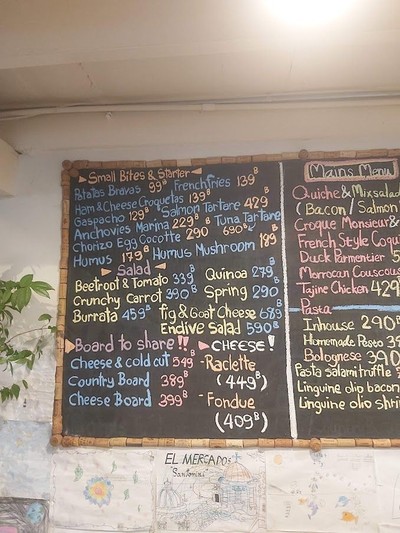 Small Bites & Starter
Patatas Bravas 99฿ Frenchfries 139฿
Ham & Cheese Croquetas 139฿
Gaspacho 129฿ Salmon Tartare 429฿
Anchovies Marina 229฿ Tuna Tartare
Chorizo Egg Cocotte 290 690฿
Humus 179฿ Humus Mushroom 199฿
Salad
Beetroot & Tomato 339฿ Quinoa 279฿
Crunchy Carrot 390฿ Spring 290
Burrata 459฿ fig & Goat Cheese 689฿
Endive Salad 590฿
Board to share!!
Cheese & cold cut 549฿
Country Board 389฿
Cheese Board 399฿
CHEESE!
-Raclette
(449฿)
-Fondue
(409฿)
Mains Menu
Quiche & Mixsalad
(Bacon/Salmon
Croque Monsieur &
French Style Coqu
Duck Parmentier 5
Moroccan Couscous
Tajine Chicken 429
Pasta
Inhouse 290฿
Homemade Pesto 39
Bolognese 390
Pasta salami truffle
Linguine olio bacon
Linguine olio shri
EL MERCADO
"Santorini"